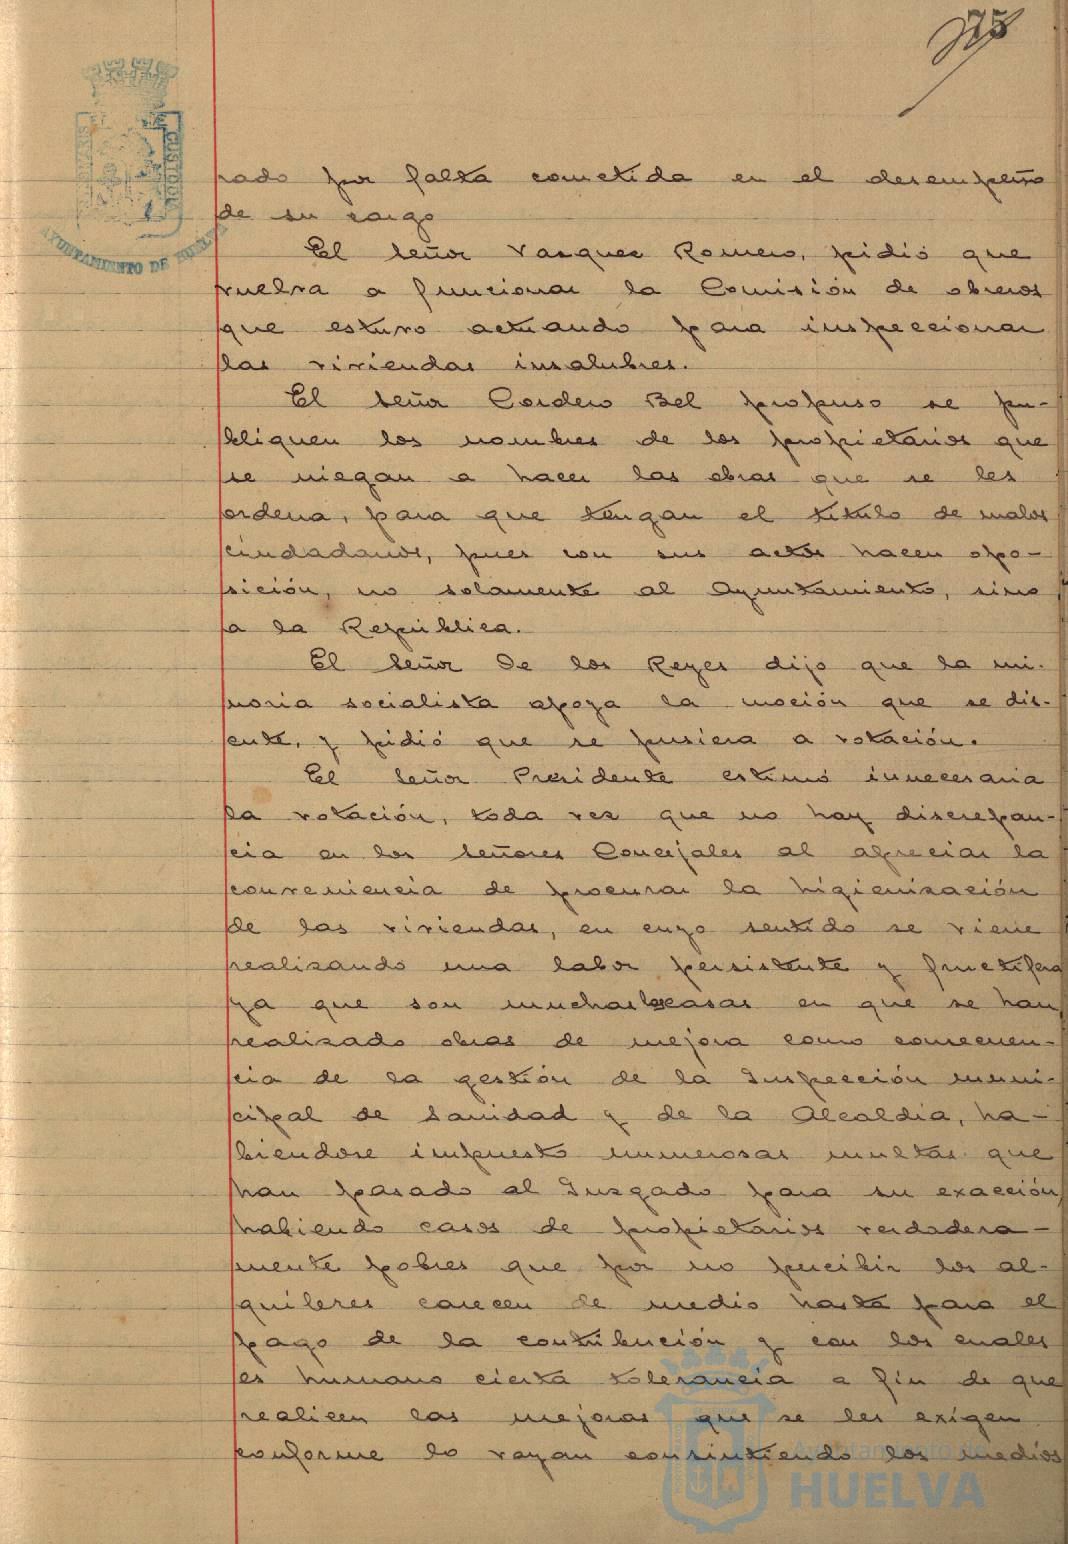 75
AYUNTAMIENTO DE HUELVA
rado por falta cometida en el desempeño
de su cargo
El Señor Vazquez Romero, pidió que
vuelva a funcionar la Comisión de obreros
que estuvo actuando para inspeccionar
las viviendas insalubres.
El Señor Cordero Bel propuso se pu-
bliquen los nombres de los propietarios que
se niegan a hacer las obras que se les
ordena, para que tengan el título de malos
ciudadanos, pues con sus actos hacen opo-
sición, no solamente al Ayuntamiento, sino
a la República.
El Señor De los Reyes dijo que la mi-
noria socialista apoya la moción que se dis-
cute, y pidió que se pusiera a votación.
El Señor Presidente estimó innecesaria
la votación, toda vez que no hay discrepan-
cia en los Señores Concejales al apreciar la
conveniencia de procurar la higienización
de las viviendas, en cuyo sentido se viene
realizando una labor persistente y fructifera
ya que son muchas las casas en que se han
realizado obras de mejora como consecuen-
cia de la gestión de la Inspección muni-
cipal de Sanidad y de la Alcaldia, ha-
biendose impuesto numerosas multas que
han pasado al Juzgado para su exacción,
habiendo casos de propietarios verdadera-
mente pobres que por no percibir los al-
quileres carecen de medio hasta para el
pago de la contribución y con los cuales
es humano cierta tolerancia a fin de que
realicen las mejoras que se les exigen
conforme lo vayan consintiendo los medios
Ayuntamiento de
HUELVA